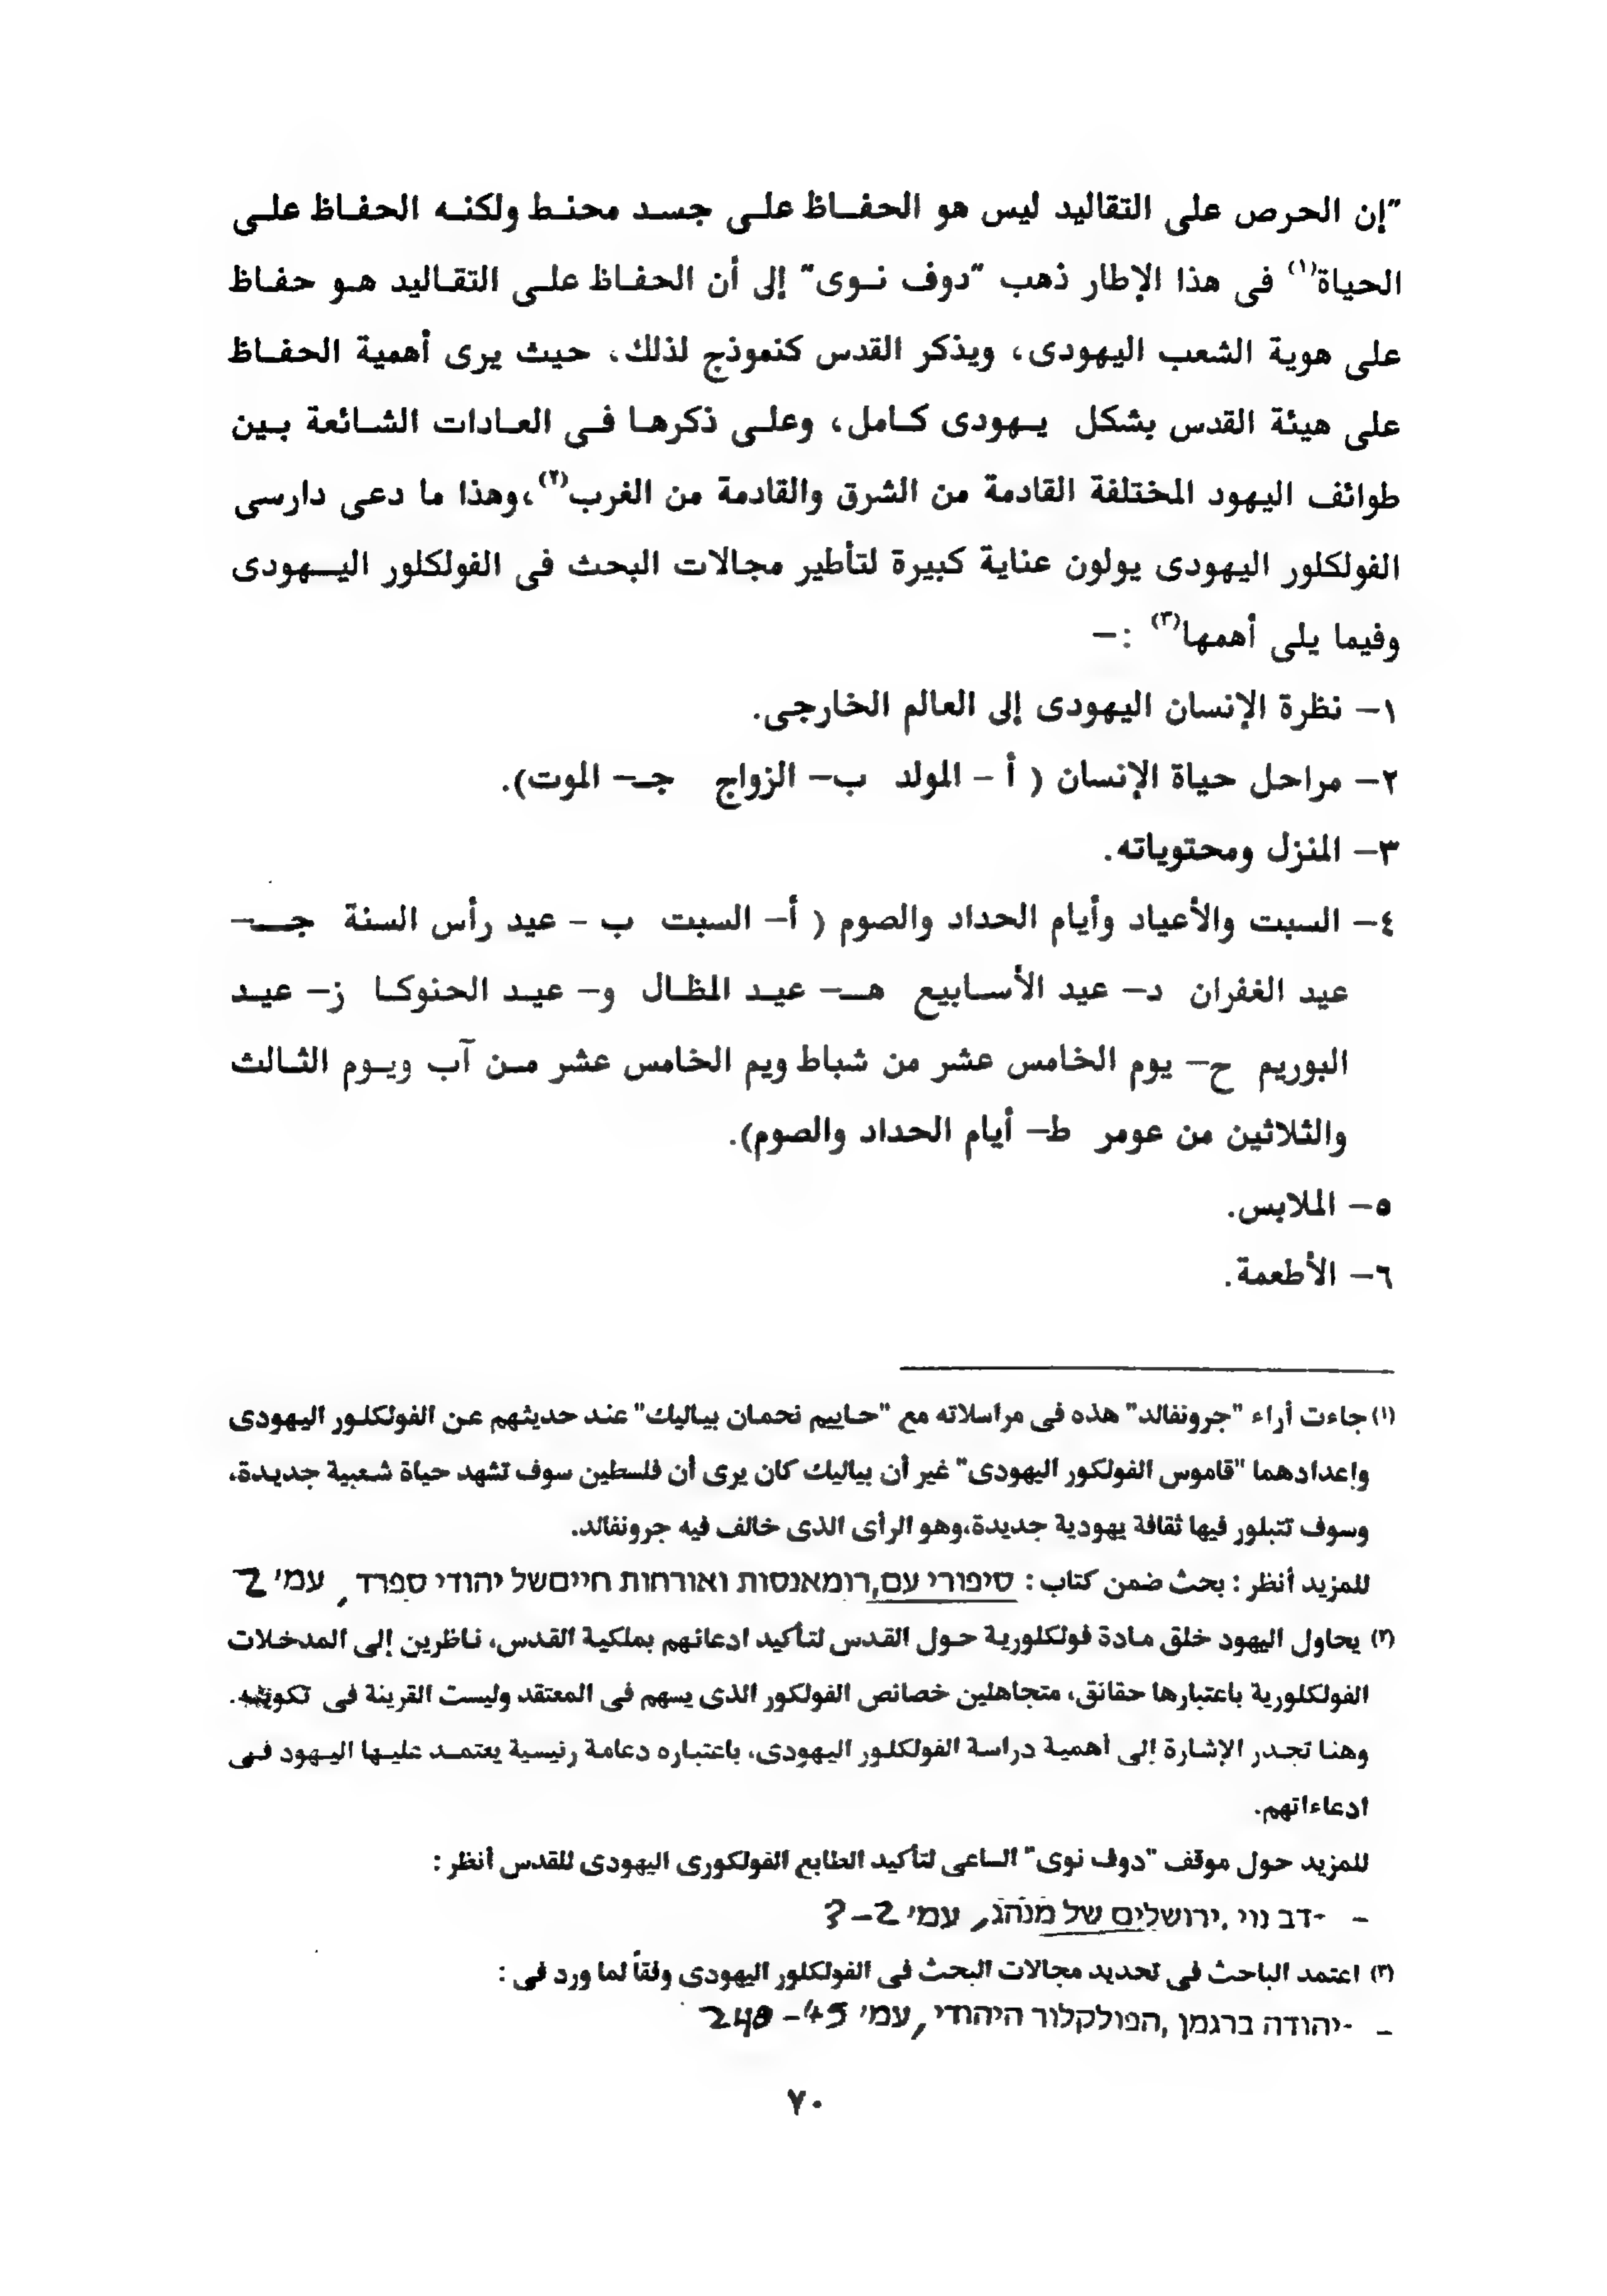 "إن الحرص على التقاليد ليس هو الحفاظ على جسد محنط ولكنه الحفاظ على
الحياة(١) فى هذا الإطار ذهب "دوف نوى" إلى أن الحفاظ على التقاليد هو حفاظ
على هوية الشعب اليهودى، ويذكر القدس كنموذج لذلك، حيث يرى أهمية الحفاظ
على هيئة القدس بشكل يهودى كامل، وعلى ذكرها فى العادات الشائعة بين
طوائف اليهود المختلفة القادمة من الشرق والقادمة من الغرب(٢)،وهذا ما دعى دارسى
الفولكلور اليهودى يولون عناية كبيرة لتأطير مجالات البحث فى الفولكلور اليهودى
وفيما يلى أهمها(٣) :–
١– نظرة الإنسان اليهودى إلى العالم الخارجى.
٢– مراحل حياة الإنسان ( أ – المولد ب– الزواج جـ– الموت).
٣– المنزل ومحتوياته.
٤– السبت والأعياد وأيام الحداد والصوم ( أ– السبت ب – عيد رأس السنة جـ–
عيد الغفران د– عيد الأسابيع هـ– عيد المظال و– عيد الحنوكا ز– عيد
البوريم ح– يوم الخامس عشر من شباط ويم الخامس عشر من آب ويوم الثالث
والثلاثين من عومر ط– أيام الحداد والصوم).
٥– الملابس.
٦– الأطعمة.
(١) جاءت أراء "جرونفالد" هذه فى مراسلاته مع "حاييم نحمان بياليك" عند حديثهم عن الفولكلور اليهودى
وإعدادهما "قاموس الفولكور اليهودى" غير أن بياليك كان يرى أن فلسطين سوف تشهد حياة شعبية جديدة،
وسوف تتبلور فيها ثقافة يهودية جديدة،وهو الرأى الذى خالف فيه جرونفالد.
للمزيد أنظر : بحث ضمن كتاب : סיפורי עם,רומאנסות ואורחות חייםשל יהודי ספרד , עמי 2
(٢) يحاول اليهود خلق مادة فولكلورية حول القدس لتأكيد ادعائهم بملكية القدس، ناظرين إلى المدخلات
الفولكلورية باعتبارها حقائق، متجاهلين خصائص الفولكور الذى يسهم فى المعتقد وليست القرينة فى تكوينه.
وهنا تجدر الإشارة إلى أهمية دراسة الفولكلور اليهودى، باعتباره دعامة رئيسية يعتمد عليها اليهود فى
ادعاءاتهم.
للمزيد حول موقف "دوف نوى" الساعى لتأكيد الطابع الفولكورى اليهودى للقدس أنظر :
– -דב נוי ,ירושלים של מנהג, עמי 2–3
(٣) اعتمد الباحث فى تحديد مجالات البحث فى الفولكلور اليهودى وفقاً لما ورد فى :
– -יהודה ברגמן ,הפולקלור היהודי ,עמי 45–
٧٠